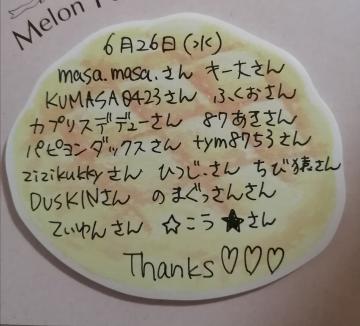 Melon
6月26日(水)
masa.masa.さん キー大さん
KUMASA0423さん ふくおさん
カプリスデデューさん 87あきさん
パピヨンダックスさん tym8753さん
zizikukkyさん ひつじ.さん ちび猿さん
DUSKINさん のまぐっさんさん
てぃゆんさん ☆こう★さん
Thanks♡♡♡